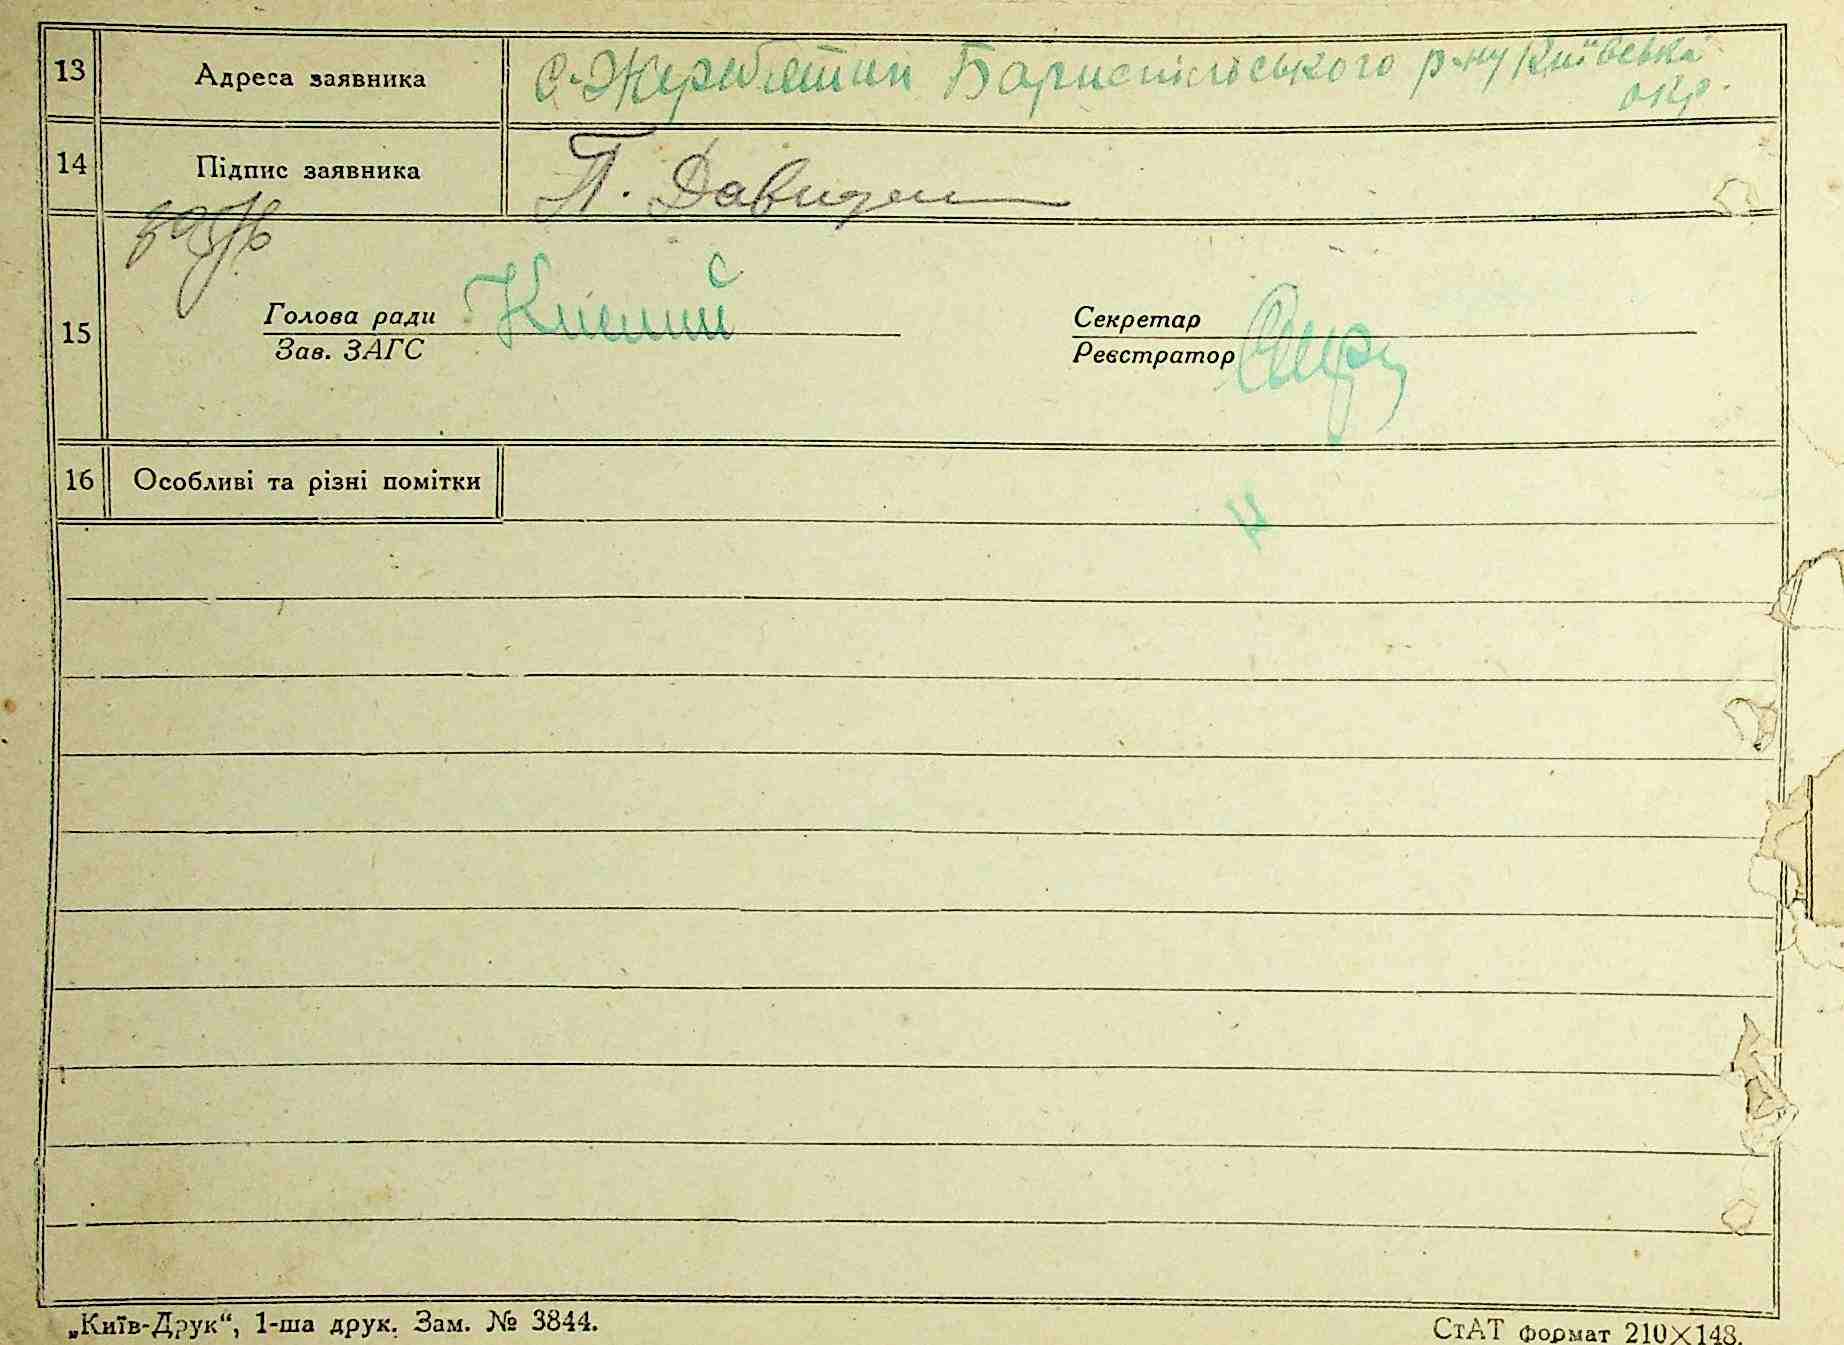 13 Адреса заявника с. Жеребятин Бориспільського р-ну Київська
окр.
14 Підпис заявника П. Давиден
15 Голова ради Кислий Секретар
Зав. ЗАГС Реєстратор
16 Особливі та різні помітки
„Київ-Друк“, 1-ша друк. Зам. № 3844. СтАТ формат 210×148.